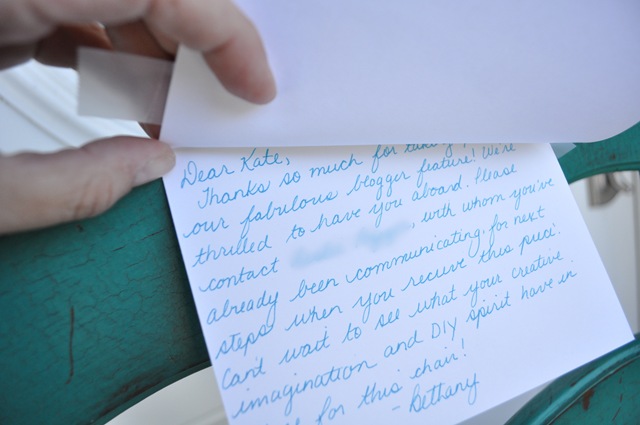 Dear Kate,
Thanks so much for
our fabulous blogger feature! We're
thrilled to have you aboard. Please
contact , with whom you've
already been communicating, for next
steps when you receive this piece.
Can't wait to see what your creative
imagination and DIY spirit have in
for this chair!
- Bethany